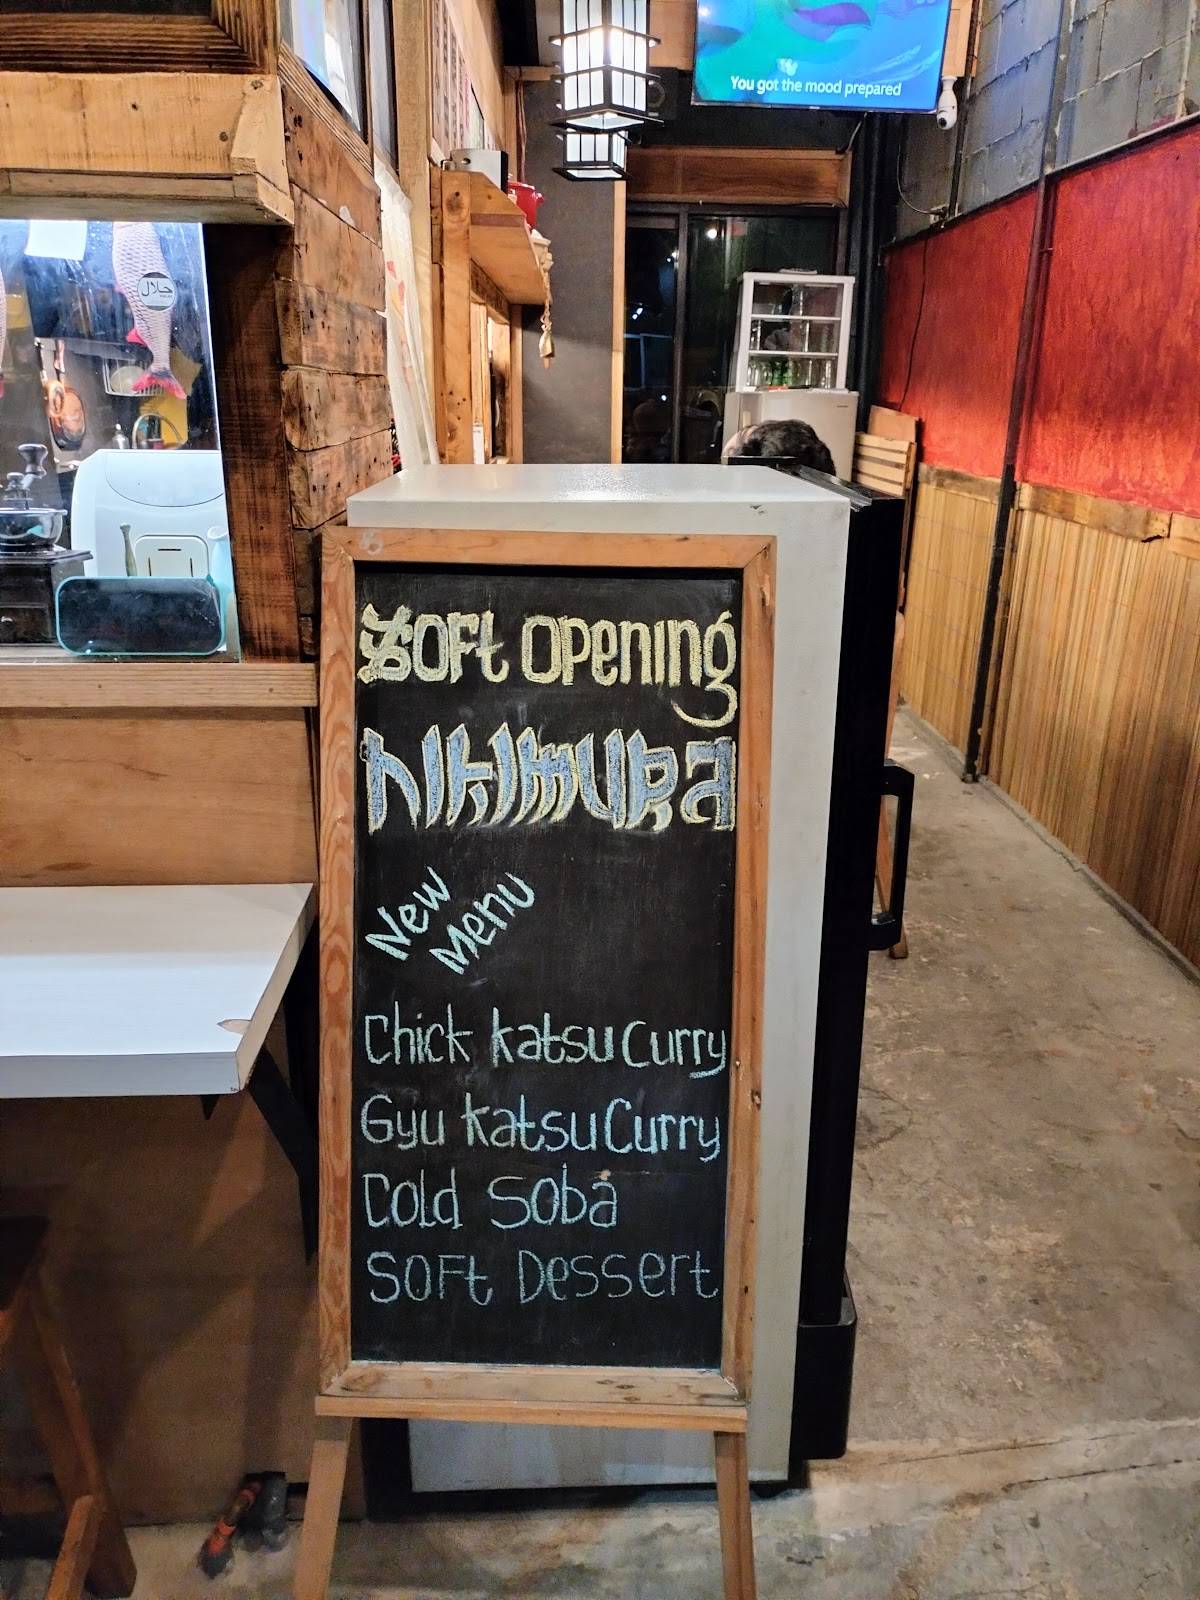 You got the mood prepared
حلال
Soft Opening
Nikimura
New
Menu
Chick Katsu Curry
Gyu Katsu Curry
Cold Soba
Soft Dessert